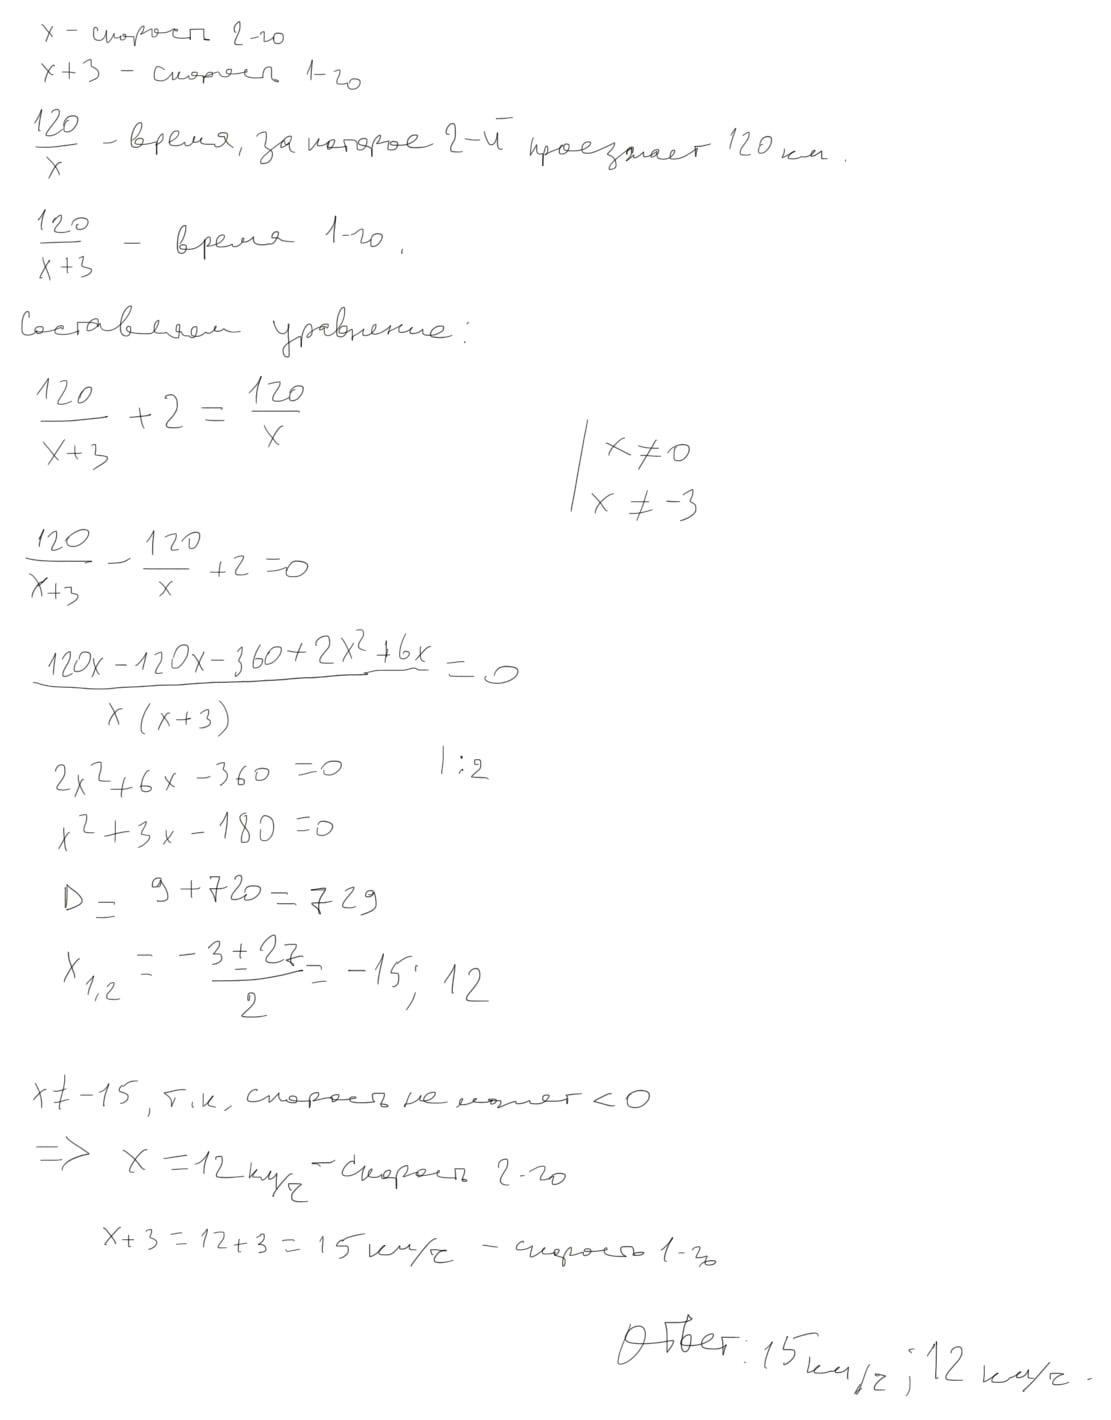 x - скорость 2-го
x+3 - скорость 1-го
120/x - время, за которое 2-й проезжает 120 км.
120/(x+3) - время 1-го.
Составляем уравнение:
120/(x+3) + 2 = 120/x
| x ≠ 0
x ≠ -3
120/(x+3) - 120/x + 2 = 0
(120x - 120x - 360 + 2x² + 6x)/(x(x+3)) = 0
2x² + 6x - 360 = 0 | :2
x² + 3x - 180 = 0
D = 9 + 720 = 729
x₁,₂ = (-3 ± 27)/2 = -15; 12
x ≠ -15, т.к. скорость не может < 0
=> x = 12 км/ч - скорость 2-го
x+3 = 12+3 = 15 км/ч - скорость 1-го
Ответ: 15 км/ч; 12 км/ч.